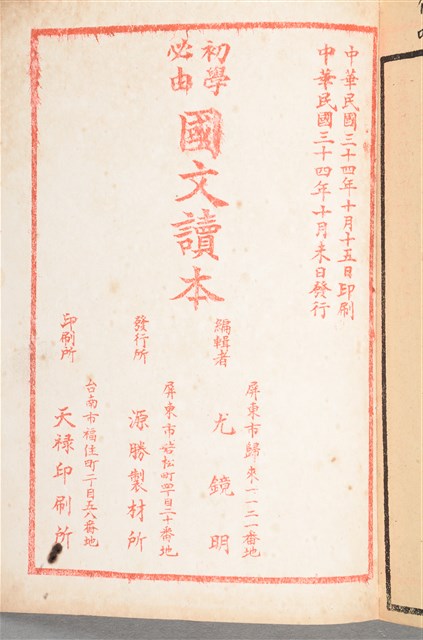 中華民國三十四年十月十五日印刷
中華民國三十四年十月末日發行
初學
必由
國文讀本
屏東市歸來一一二一番地
編輯者 尤鏡明
屏東市若松町四丁目二十番地
發行所 源勝製材所
台南市福住町二丁目五八番地
印刷所 天禄印刷所